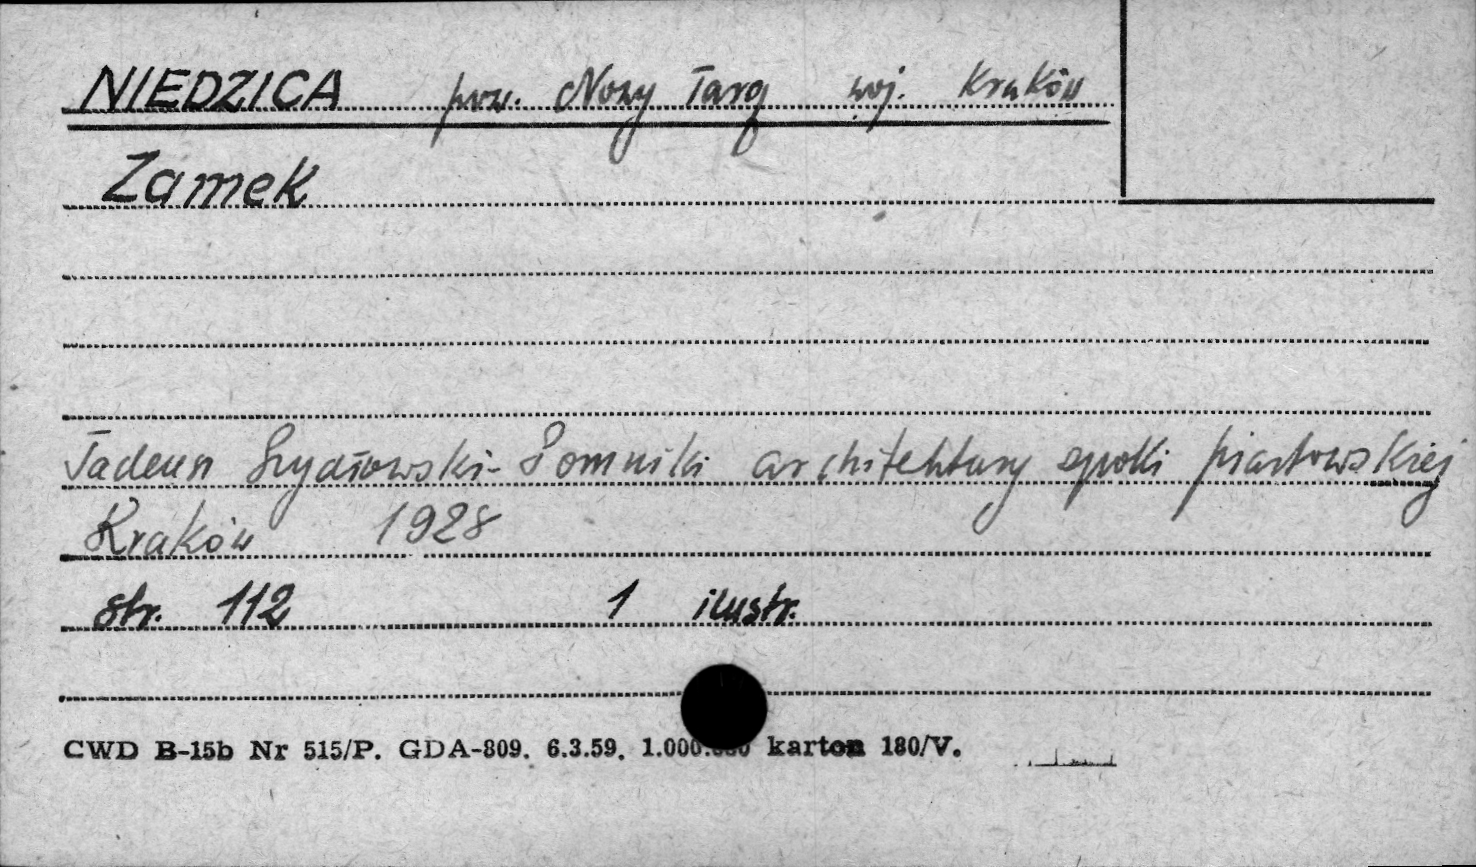 NIEDZICA pow. Nowy Targ woj. Kraków
Zamek
Tadeusz Szydłowski - Pomniki architektury epoki piastowskiej
Kraków 1928
str. 112 1 ilustr.
CWD B-15b Nr 515/P. GDA-809. 6.3.59. 1.000.000 karton 180/V.